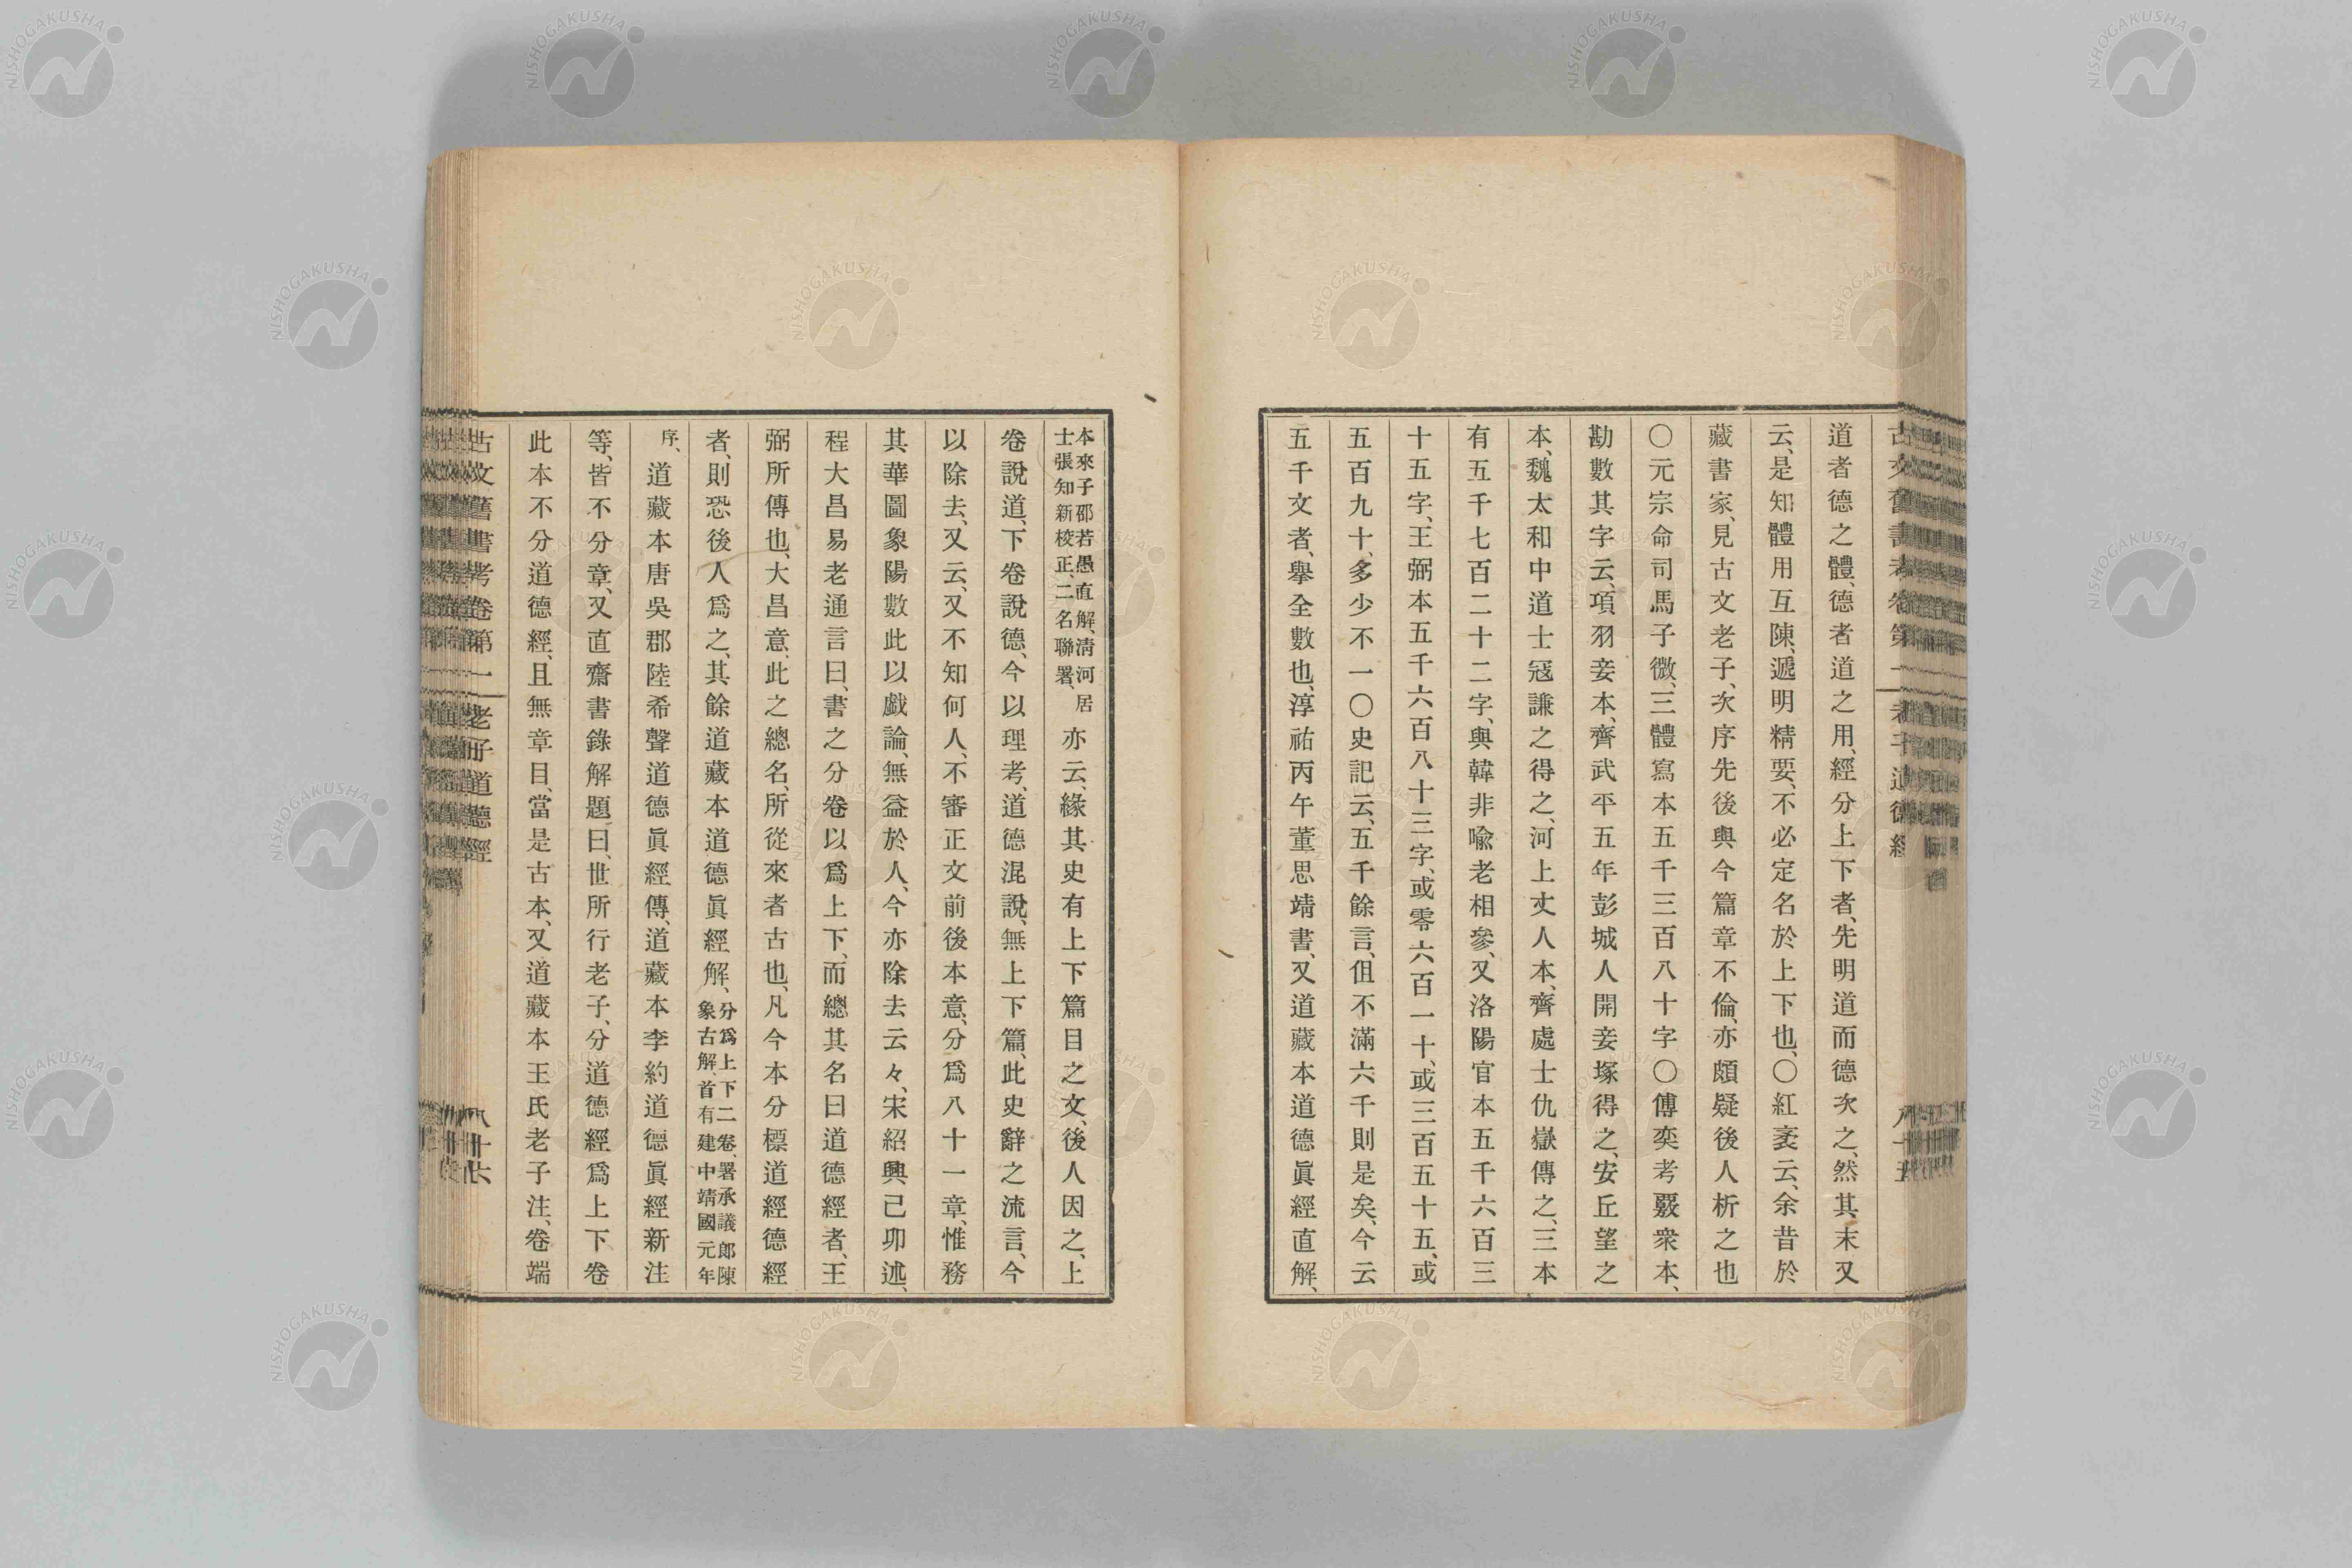 古文舊書考卷第一 老子道德經 八十五
道者德之體、德者道之用、經分上下者、先明道而德次之、然其末又
云、是知體用互陳、遞明精要、不必定名於上下也、〇紅袤云、余昔於
藏書家、見古文老子、次序先後與今篇章不倫、亦頗疑後人析之也
〇元宗命司馬子微、三體寫本五千三百八十字〇傅奕考覈衆本、
勘數其字云、項羽妾本、齊武平五年彭城人開妾塚得之、安丘望之
本、魏太和中道士冦謙之得之、河上丈人本、齊處士仇嶽傳之、三本
有五千七百二十二字、與韓非喩老相參、又洛陽官本五千六百三
十五字、王弼本五千六百八十三字、或零六百一十、或三百五十五、或
五百九十、多少不一〇史記云、五千餘言、伹不滿六千則是矣、今云
五千文者、擧全數也、淳祐丙午董思靖書、又道藏本道德眞經直解、
本來子邵若愚直解、淸河居
士張知新校正、二名聯署、
亦云、緣其史有上下篇目之文、後人因之、上
卷說道、下卷說德、今以理考、道德混說、無上下篇、此史辭之流言、今
以除去、又云、又不知何人、不審正文前後本意、分爲八十一章、惟務
其華圖象陽數此以戯論、無益於人、今亦除去云々、宋紹興己卯述、
程大昌易老通言曰、書之分卷以爲上下、而總其名曰道德經者、王
弼所傳也、大昌意、此之總名、所從來者古也、凡今本分標道經德經
者、則恐後人爲之、其餘道藏本道德眞經解、
分爲上下二卷、署承議郎陳
象古解、首有建中靖國元年
序、
道藏本唐吳郡陸希聲道德眞經傳、道藏本李約道德眞經新注
等、皆不分章、又直齋書錄解題曰、世所行老子、分道德經爲上下卷
此本不分道德經、且無章目、當是古本、又道藏本王氏老子注、卷端
古文舊書考卷第一 老子道德經 八十六